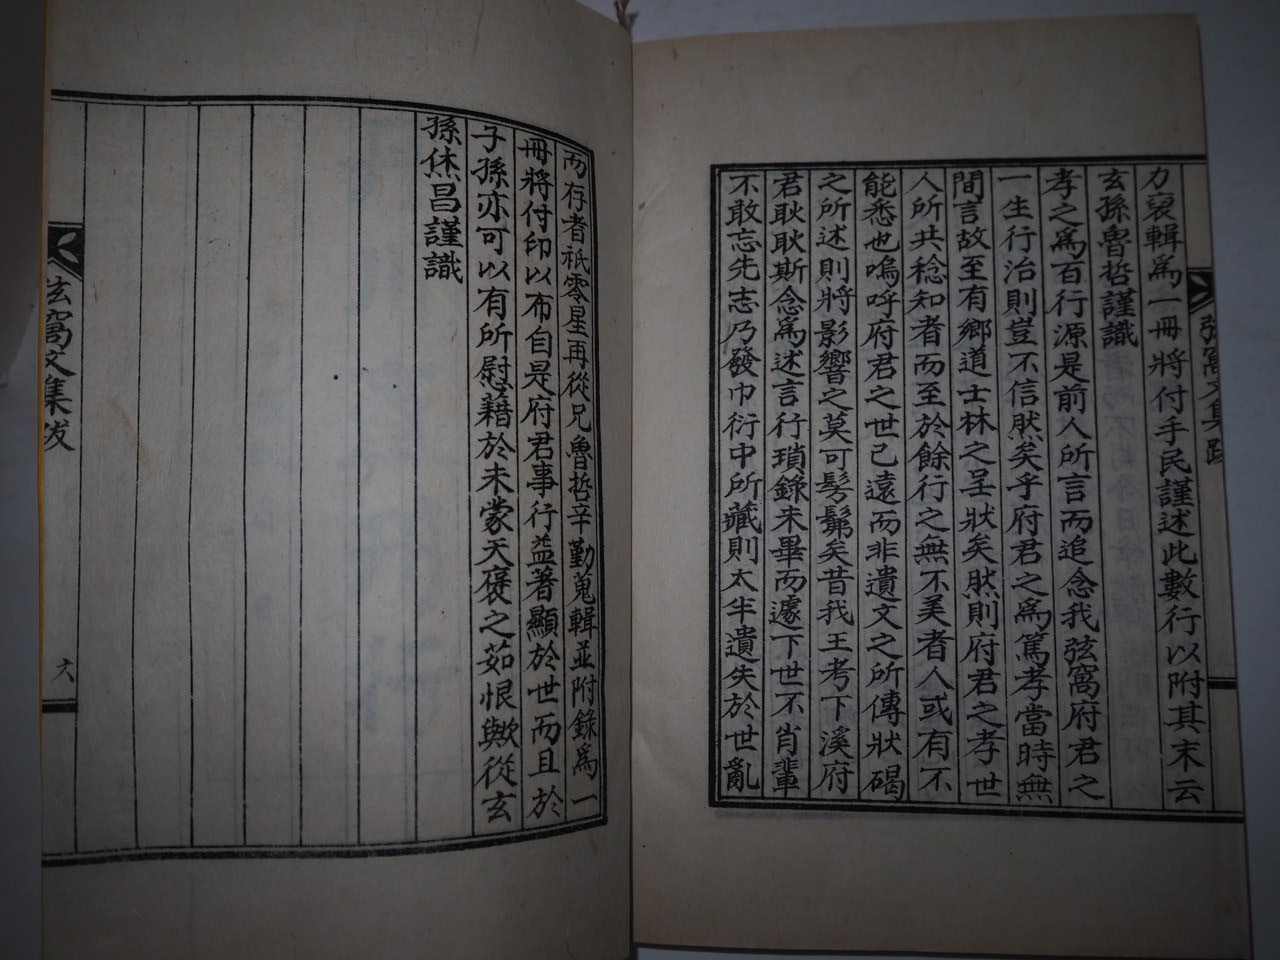 弦窩文集跋
力裒輯爲一冊將付手民謹述此數行以附其末云
玄孫魯哲謹識
孝之爲百行源是前人所言而追念我弦窩府君之
一生行治則豈不信然矣乎府君之爲篤孝當時無
間言故至有鄉道士林之呈狀矣然則府君之孝世
人所共稔知者而至於餘行之無不美者人或有不
能悉也嗚呼府君之世已遠而非遺文之所傳狀碣
之所述則將影響之莫可髣髴矣昔我王考下溪府
君耿耿斯念爲述言行瑣錄未畢而遽下世不肖輩
不敢忘先志乃發巾衍中所藏則太半遺失於世亂
而存者祇零星再從兄魯哲辛勤蒐輯並附錄爲一
冊將付印以布自是府君事行益著顯於世而且於
子孫亦可以有所慰藉於未蒙天褒之茹恨歟從玄
孫烋昌謹識
弦窩文集跋
六